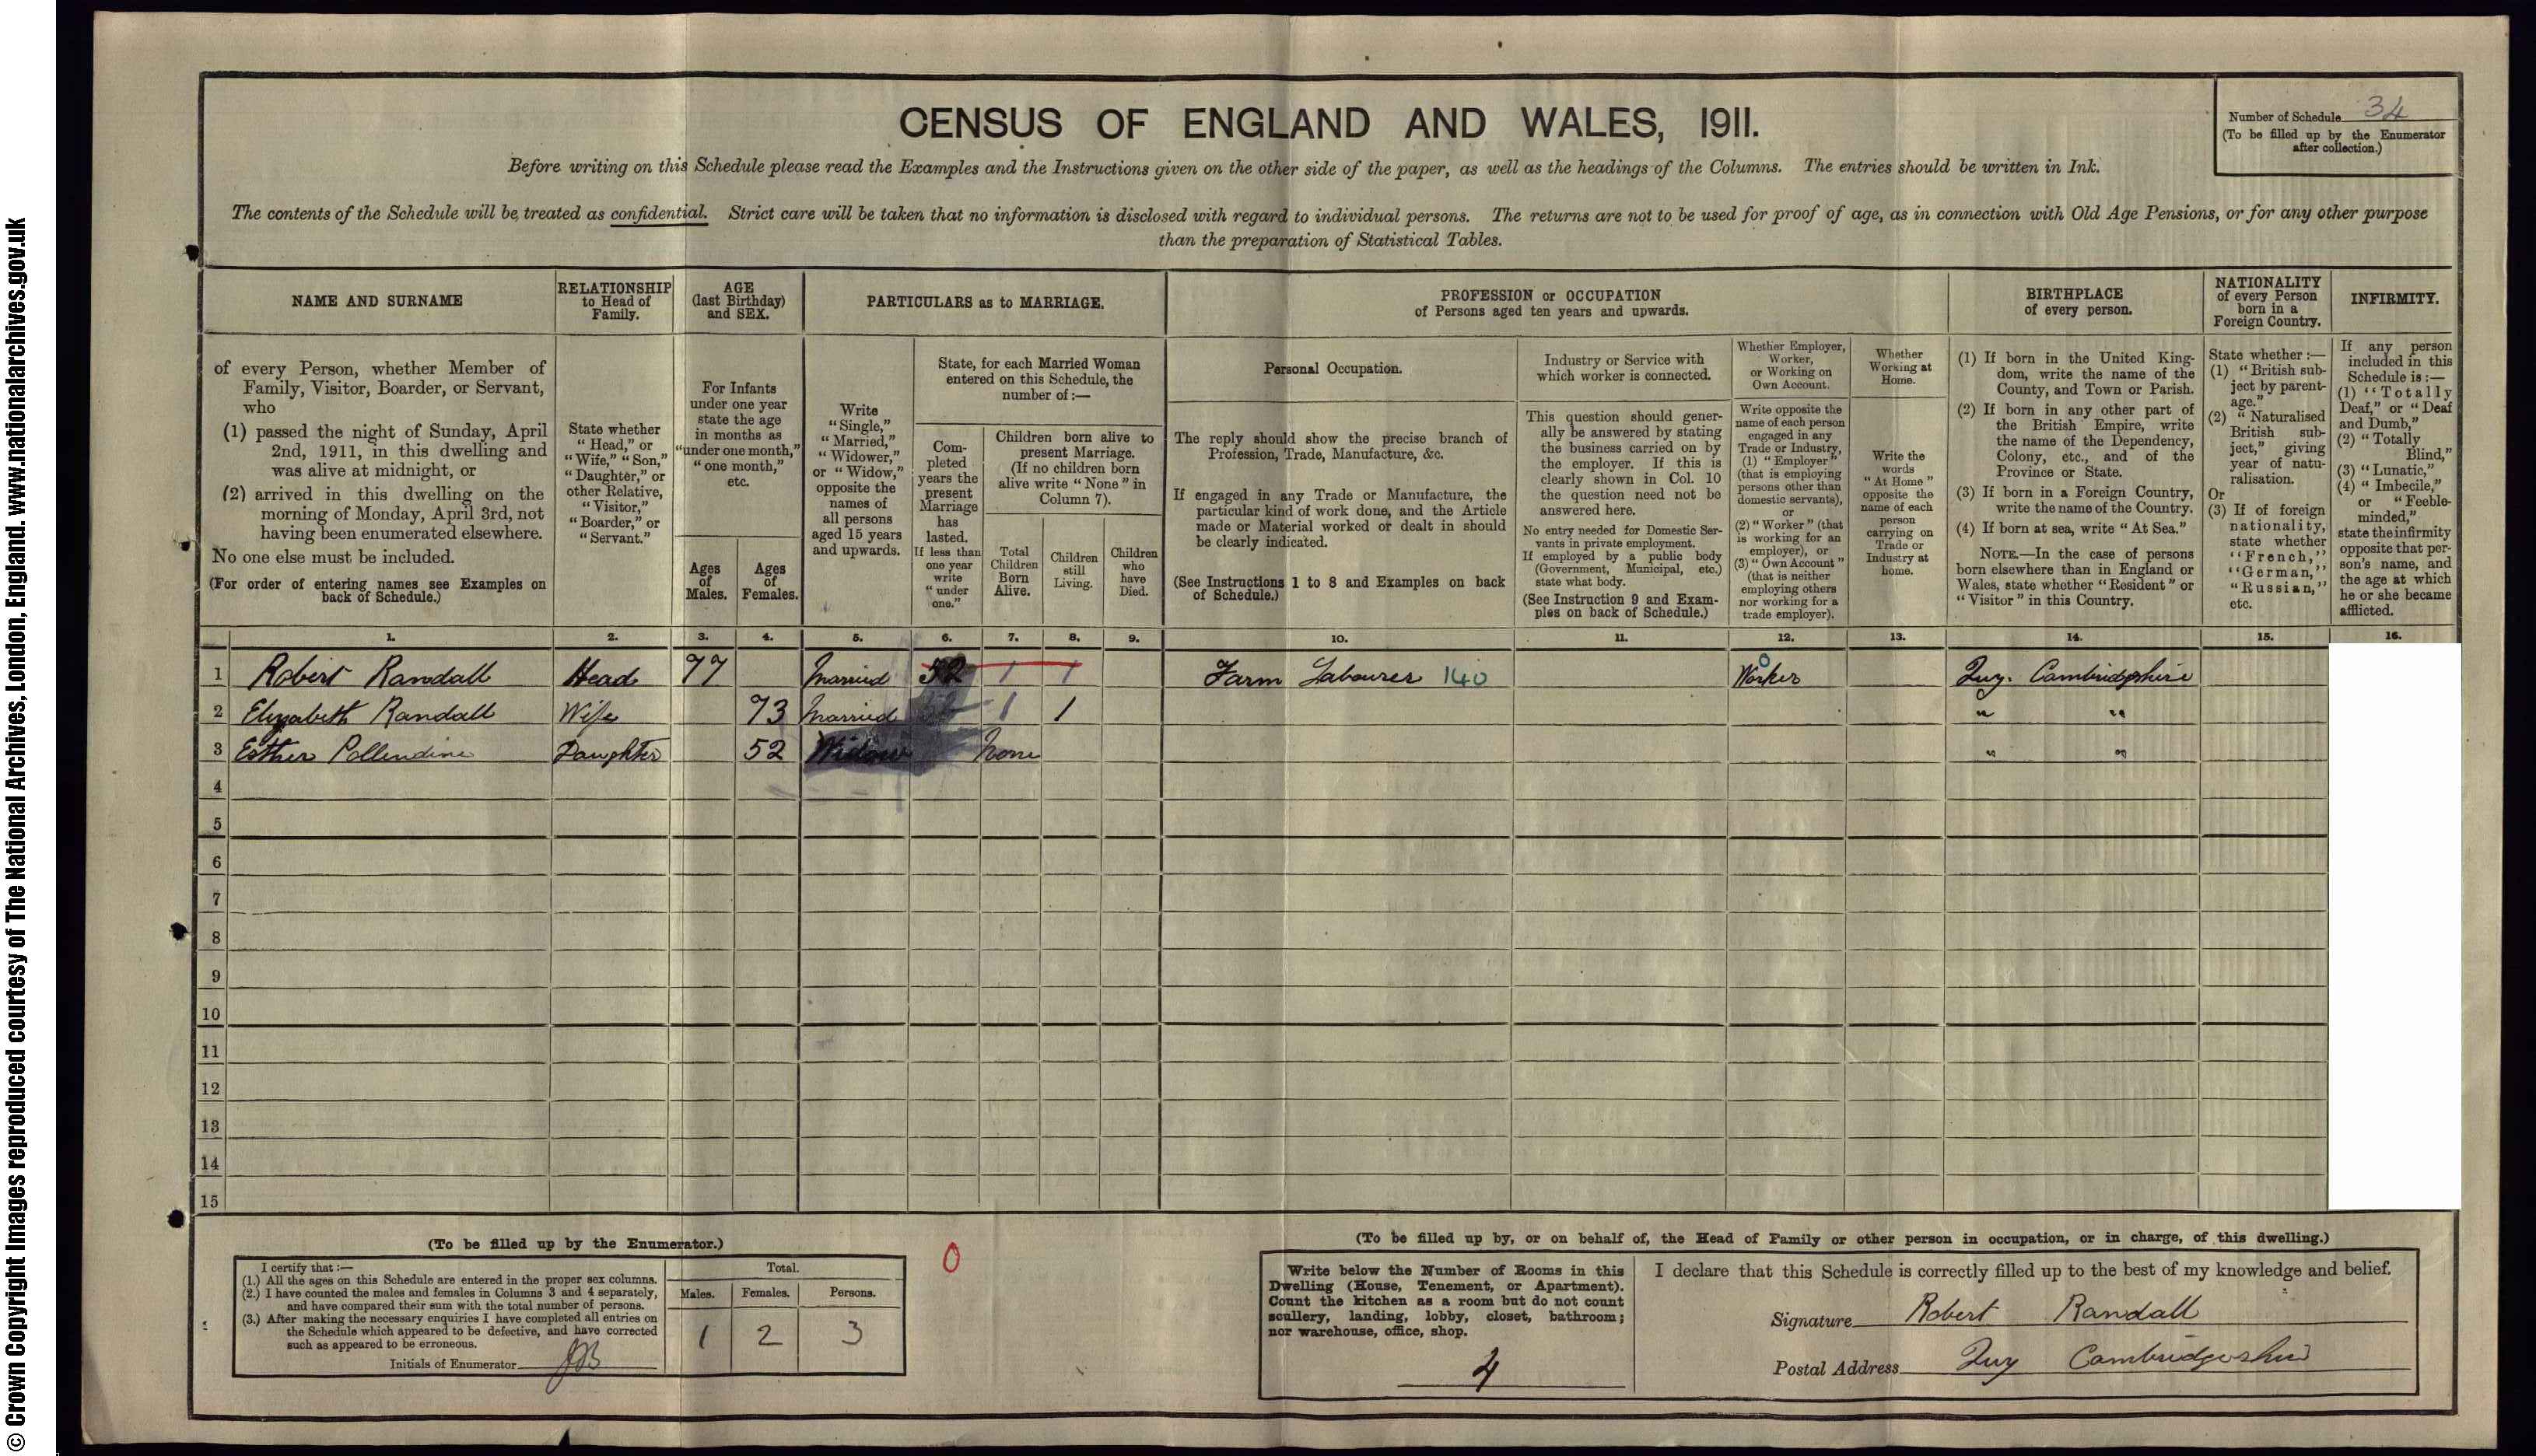 © Crown Copyright Images reproduced courtesy of The National Archives, London, England. www.nationalarchives.gov.uk
CENSUS OF ENGLAND AND WALES, 1911.
Number of Schedule 34
(To be filled up by the Enumerator
after collection.)
Before writing on this Schedule please read the Examples and the Instructions given on the other side of the paper, as well as the headings of the Columns. The entries should be written in Ink.
The contents of the Schedule will be treated as confidential. Strict care will be taken that no information is disclosed with regard to individual persons. The returns are not to be used for proof of age, as in connection with Old Age Pensions, or for any other purpose
than the preparation of Statistical Tables.
NAME AND SURNAME
of every Person, whether Member of
Family, Visitor, Boarder, or Servant,
who
(1) passed the night of Sunday, April
2nd, 1911, in this dwelling and
was alive at midnight, or
(2) arrived in this dwelling on the
morning of Monday, April 3rd, not
having been enumerated elsewhere.
No one else must be included.
(For order of entering names see Examples on
back of Schedule.)
RELATIONSHIP
to Head of
Family.
State whether
"Head," or
"Wife," "Son,"
"Daughter," or
other Relative,
"Visitor,"
"Boarder," or
"Servant."
AGE
(last Birthday)
and SEX.
For Infants
under one year
state the age
in months as
"under one month,"
"one month,"
etc.
Ages
of
Males.
Ages
of
Females.
PARTICULARS as to MARRIAGE.
Write
"Single,"
"Married,"
"Widower,"
or "Widow,"
opposite the
names of
all persons
aged 15 years
and upwards.
State, for each Married Woman
entered on this Schedule, the
number of :—
Com-
pleted
years the
present
Marriage
has
lasted.
If less than
one year
write
"under
one."
Children born alive to
present Marriage.
(If no children born
alive write "None" in
Column 7).
Total
Children
Born
Alive.
Children
still
Living.
Children
who
have
Died.
PROFESSION or OCCUPATION
of Persons aged ten years and upwards.
Personal Occupation.
The reply should show the precise branch of
Profession, Trade, Manufacture, &c.
If engaged in any Trade or Manufacture, the
particular kind of work done, and the Article
made or Material worked or dealt in should
be clearly indicated.
(See Instructions 1 to 8 and Examples on back
of Schedule.)
Industry or Service with
which worker is connected.
This question should gener-
ally be answered by stating
the business carried on by
the employer. If this is
clearly shown in Col. 10
the question need not be
answered here.
No entry needed for Domestic Ser-
vants in private employment.
If employed by a public body
(Government, Municipal, etc.)
state what body.
(See Instruction 9 and Exam-
ples on back of Schedule.)
Whether Employer,
Worker,
or Working on
Own Account.
Write opposite the
name of each person
engaged in any
Trade or Industry,
(1) "Employer"
(that is employing
persons other than
domestic servants),
or
(2) "Worker" (that
is working for an
employer), or
(3) "Own Account"
(that is neither
employing others
nor working for a
trade employer).
Whether
Working at
Home.
Write the
words
"At Home"
opposite the
name of each
person
carrying on
Trade or
Industry at
home.
BIRTHPLACE
of every person.
(1) If born in the United King-
dom, write the name of the
County, and Town or Parish.
(2) If born in any other part of
the British Empire, write
the name of the Dependency,
Colony, etc., and of the
Province or State.
(3) If born in a Foreign Country,
write the name of the Country.
(4) If born at sea, write "At Sea."
NOTE.—In the case of persons
born elsewhere than in England or
Wales, state whether "Resident" or
"Visitor" in this Country.
NATIONALITY
of every Person
born in a
Foreign Country.
State whether :—
(1) "British sub-
ject by parent-
age."
(2) "Naturalised
British sub-
ject," giving
year of natu-
ralisation.
Or
(3) If of foreign
nationality,
state whether
"French,"
"German,"
"Russian,"
etc.
INFIRMITY.
If any person
included in this
Schedule is :—
(1) "Totally
Deaf," or "Deaf
and Dumb,"
(2) "Totally
Blind,"
(3) "Lunatic,"
(4) "Imbecile,"
or "Feeble-
minded,"
state the infirmity
opposite that per-
son's name, and
the age at which
he or she became
afflicted.
1. 2. 3. 4. 5. 6. 7. 8. 9. 10. 11. 12. 13. 14. 15. 16.
1 Robert Randall Head 77 Married 52 1 1 Farm Labourer 140 Worker 0 Quy. Cambridgshire
2 Elizabeth Randall Wife 73 Married 1 1 " "
3 Esther Pollendine Daughter 52 Widow None " "
4
5
6
7
8
9
10
11
12
13
14
15
(To be filled up by the Enumerator.)
I certify that :—
(1.) All the ages on this Schedule are entered in the proper sex columns.
(2.) I have counted the males and females in Columns 3 and 4 separately,
and have compared their sum with the total number of persons.
(3.) After making the necessary enquiries I have completed all entries on
the Schedule which appeared to be defective, and have corrected
such as appeared to be erroneous.
Initials of Enumerator
Total.
Males. Females. Persons.
1 2 3
0
(To be filled up by, or on behalf of, the Head of Family or other person in occupation, or in charge, of this dwelling.)
Write below the Number of Rooms in this
Dwelling (House, Tenement, or Apartment).
Count the kitchen as a room but do not count
scullery, landing, lobby, closet, bathroom;
nor warehouse, office, shop.
4
I declare that this Schedule is correctly filled up to the best of my knowledge and belief.
Signature Robert Randall
Postal Address Quy Cambridgeshire